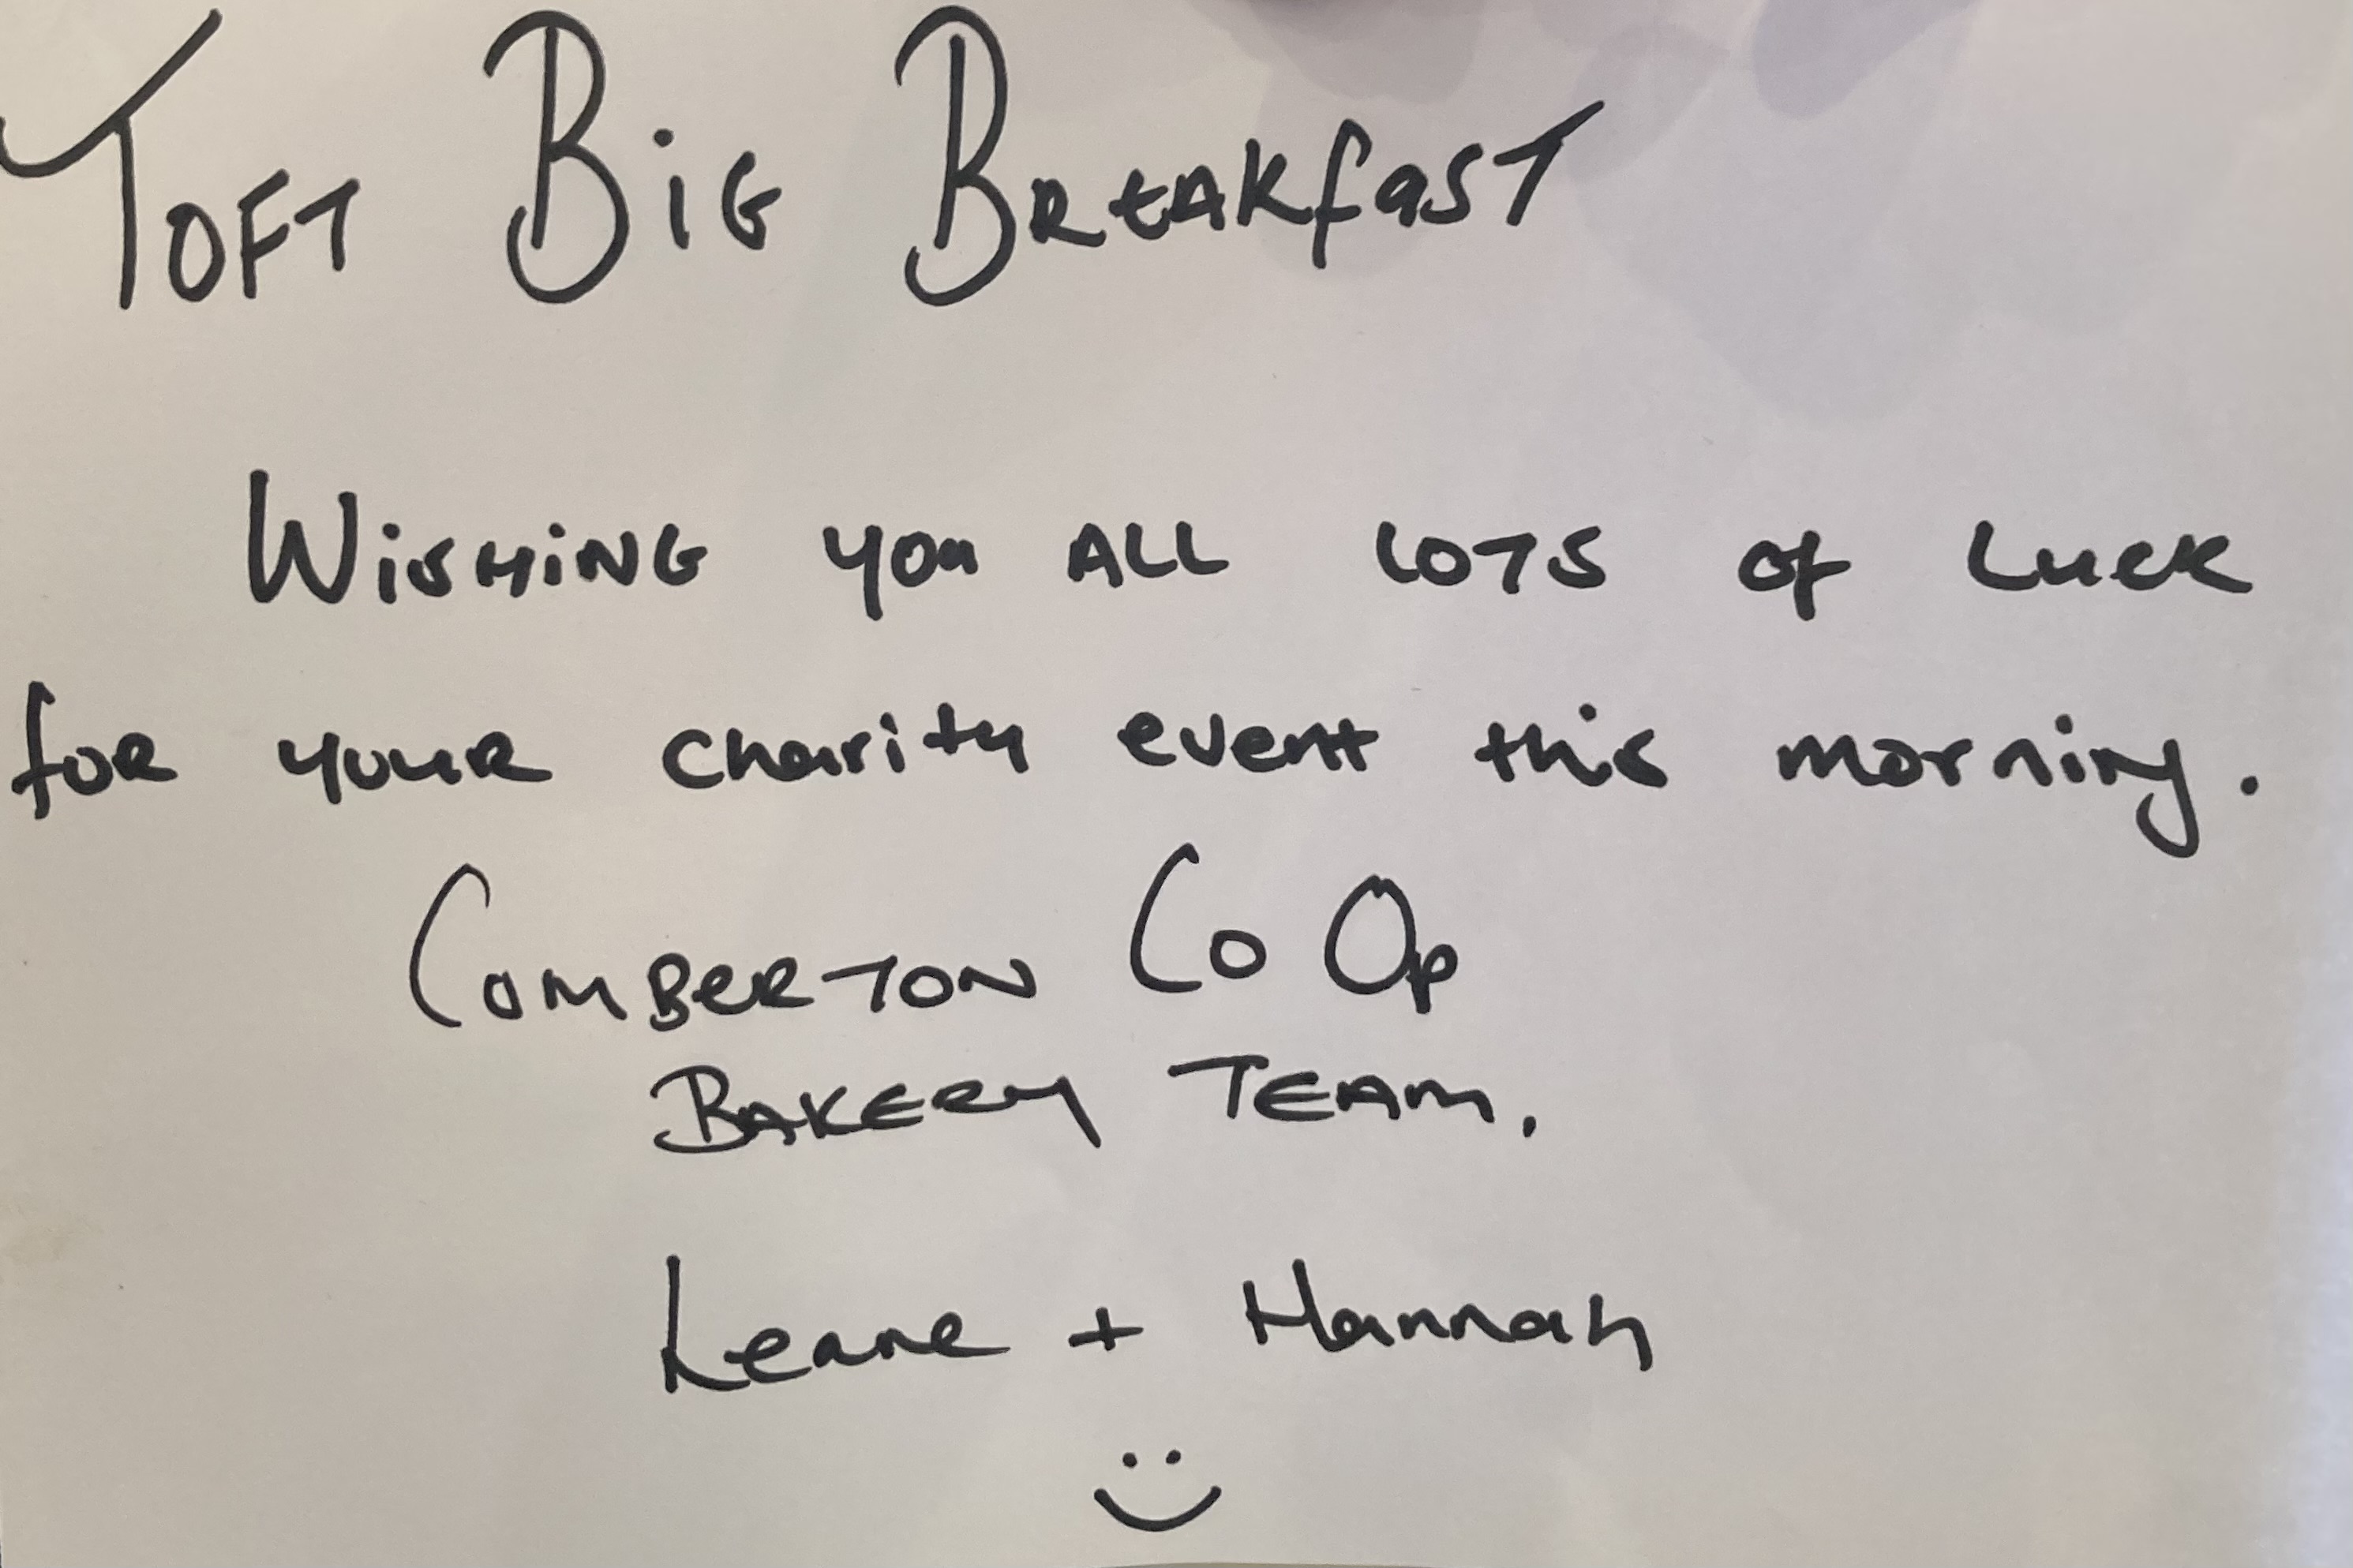 TOFT BiG BREAKfaST
WiSHiNG you ALL LOTS of Luck
for youR charity event this morning.
COMBERTON Co Op
BAKERY TEAM.
Leane + Hannah